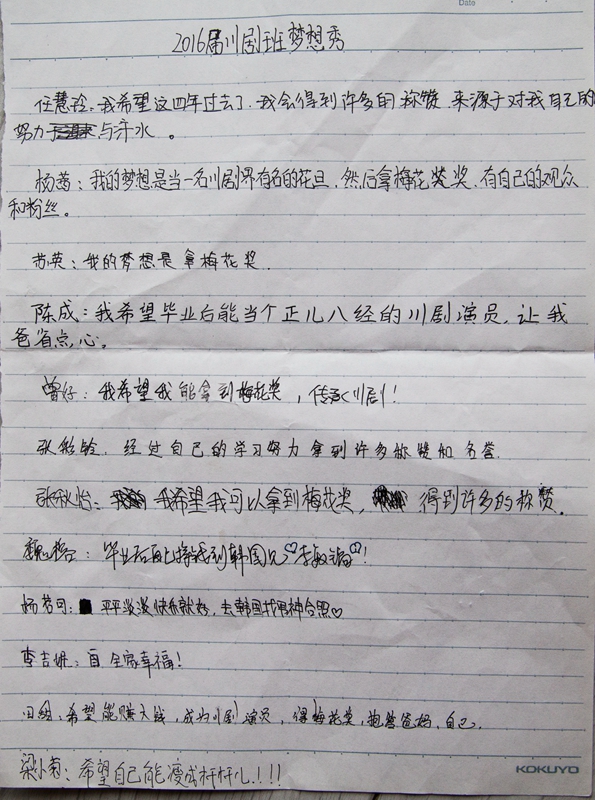 Date
2016届川剧班梦想秀
任慧玲：我希望这四年过去了，我会得到许多的称赞，来源于对我自己的
努力与汗水。
杨茜：我的梦想是当一名川剧界有名的花旦，然后拿梅花奖，有自己的观众
和粉丝。
苏英：我的梦想是拿梅花奖。
陈成：我希望毕业后能当个正儿八经的川剧演员，让我
爸省点心。
曾好：我希望我能拿到梅花奖，传承川剧！
张彩玲：经过自己的学习努力拿到许多称赞和名誉。
张秋怡：我希望我可以拿到梅花奖，得到许多的称赞。
毕业后 到韩国见李敏镐！
杨若可：平平淡淡快乐就好，去韩国找男神合照♡
李吉 ：全家幸福！
田 ：希望能赚大钱，成为川剧演员，得梅花奖，抱 爸妈，自己。
梁小菊：希望自己能瘦成杆杆儿！！！
KOKUYO